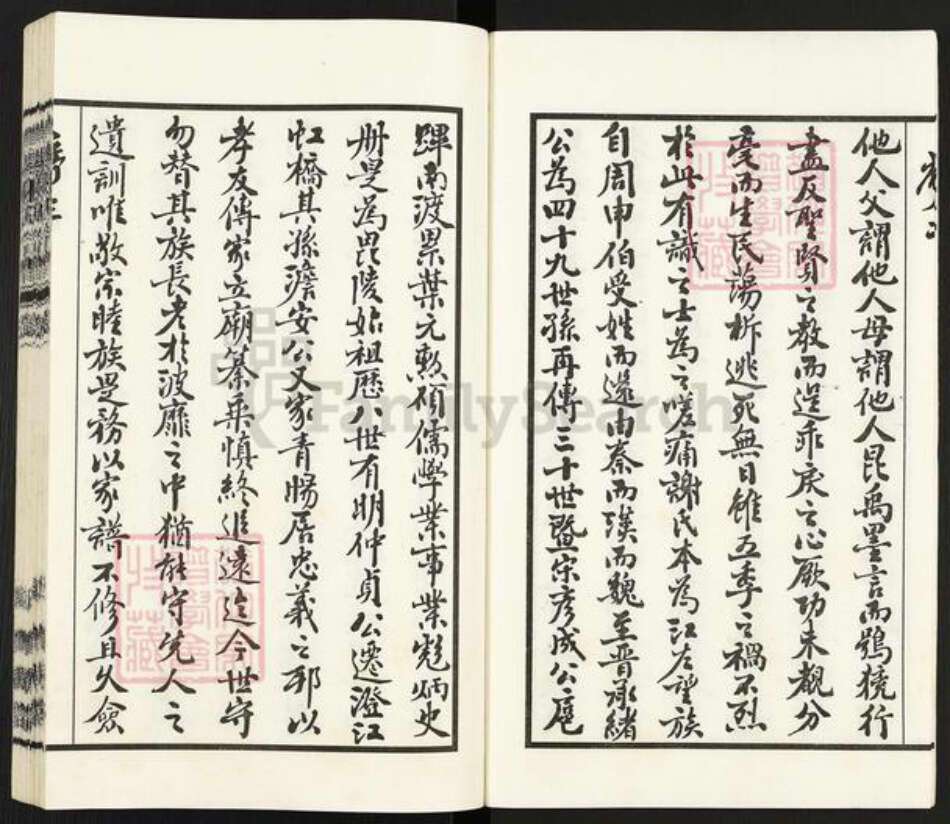 他人父謂他人母謂他人昆禹墨言而鴞獍行
盡反聖賢之教而逞乖戾之心厥功未覩分
毫而生民蕩析逃死無日雖五季之禍不烈
於此有識之士為之嗟痛謝氏本為江左望族
自周申伯受姓而還由秦而漢而魏至晉承緒
公為四十九世孫再傳三十世暨宋彥成公扈
蹕南渡累葉元勲碩儒學業事業彪炳史
册是為毘陵始祖歷八世有明仲貞公遷澄江
虹橋其孫澹安公又家青暘居忠義之邦以
孝友傳家立廟蒸乘慎終追遠迄今世守
勿替其族長老於波靡之中猶能守先人之
遺訓唯敬宗睦族是務以家譜不修且久僉
FamilySearch